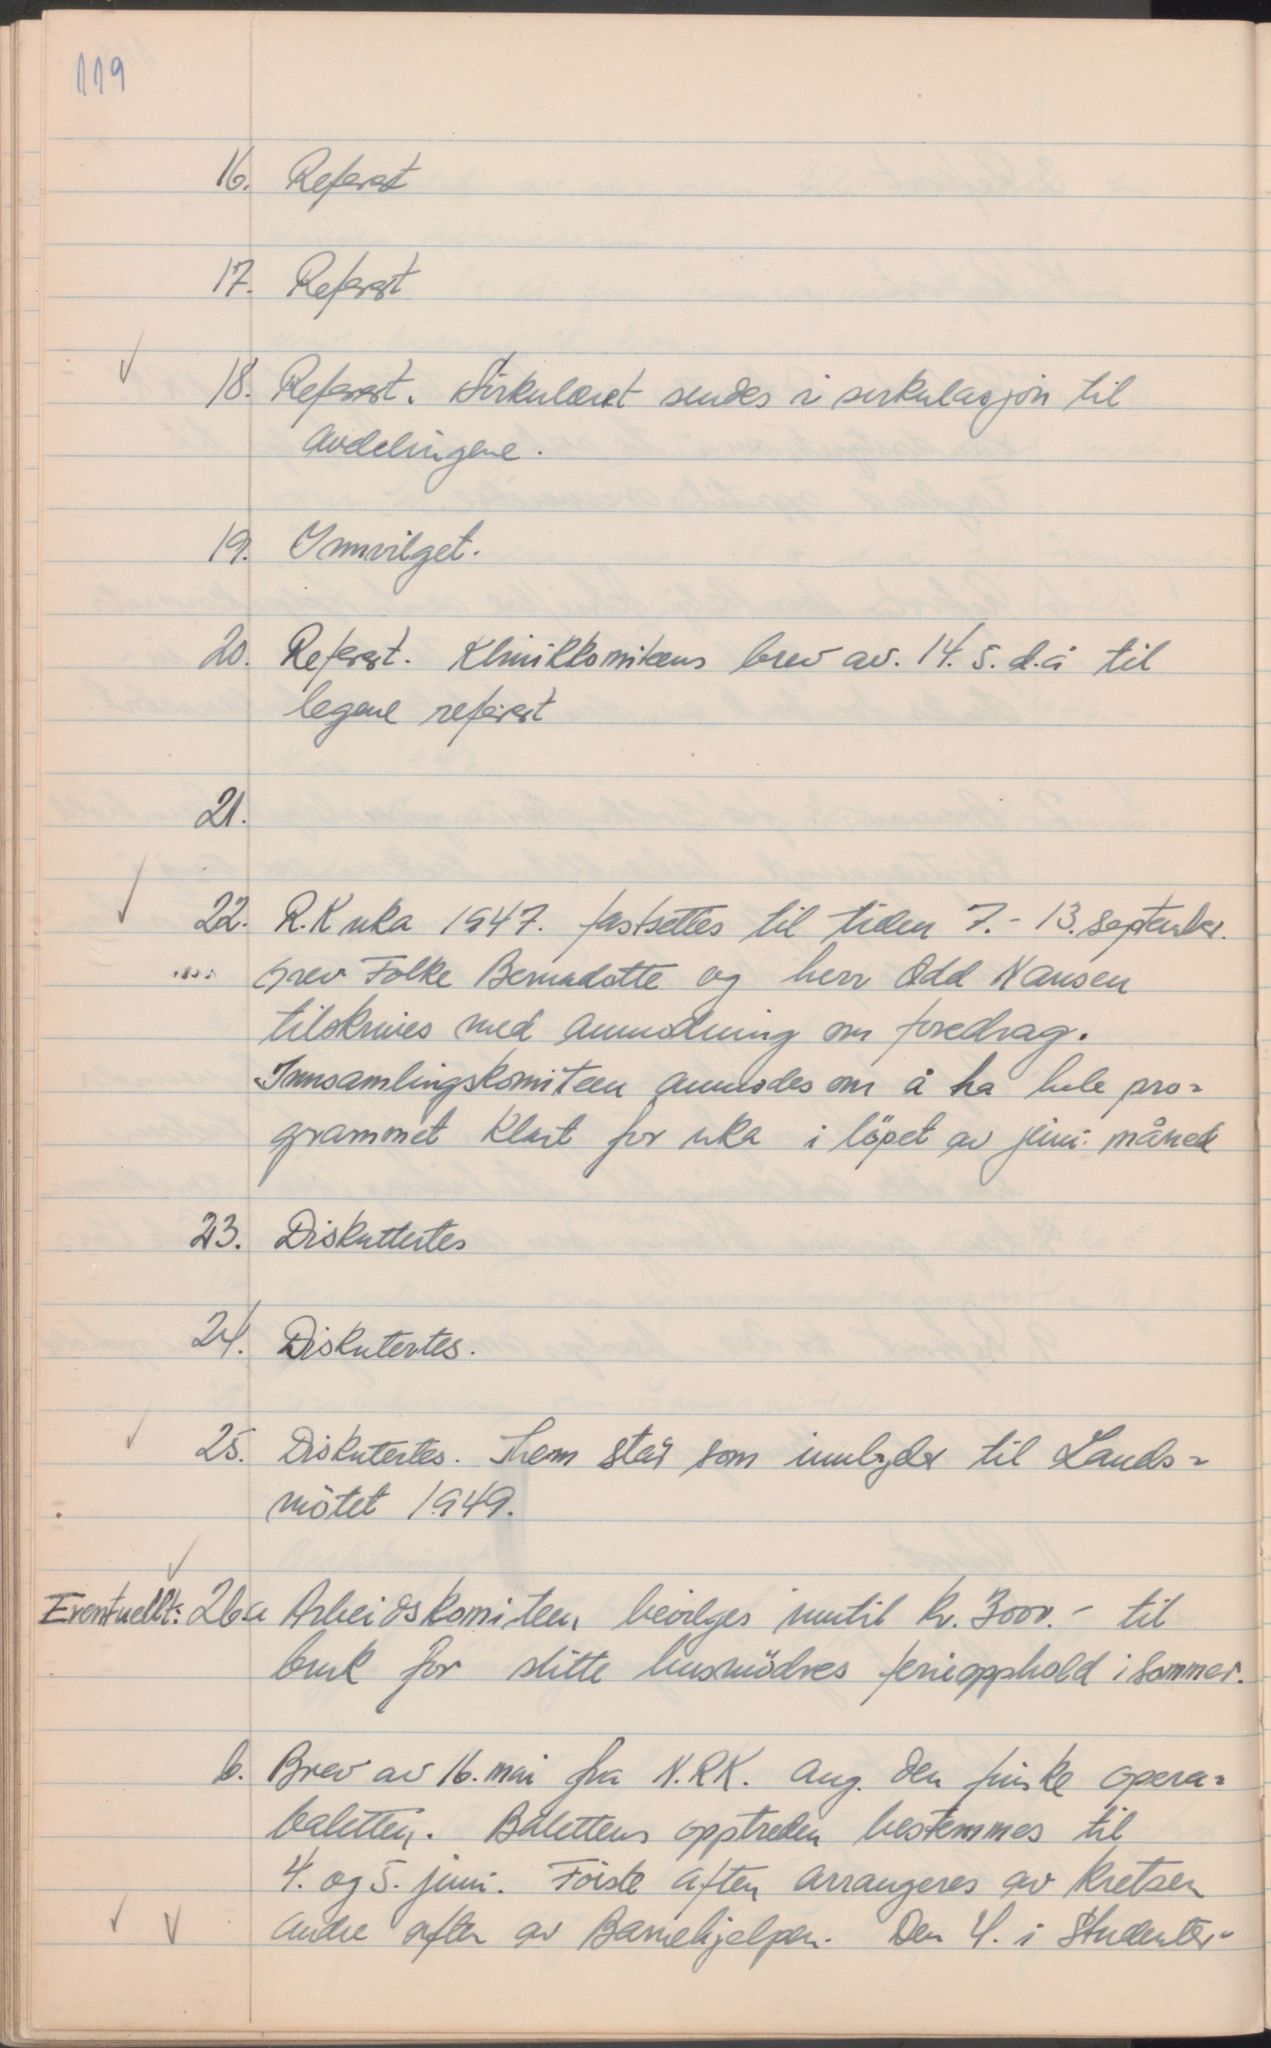 119
16. Referert
17. Referert
18. Referert. Sirkulæret sendes i sirkulasjon til
avdelingene.
19. Innvilget.
20. Referert. Klinikkomiteens brev av. 14.5. d.å til
legene referert
21.
22. R.K uka 1947. fastsettes til tiden 7.- 13. september.
grev Folke Bernadotte og herr Odd Nansen
tilskrives med anmodning om foredrag.
Innsamlingskomiteen anmodes om å ha hele pro-
grammet klart for uka i löpet av juni måned
23. Diskuttertes
24. Diskutertes.
25. Diskutertes. Trom står som innbyder til Lands-
mötet 1949.
Eventuellt: 26a Arbeidskomiteen bevilges inntil kr. 3000.- til
bruk for slitte husmödres ferieopphold i sommer.
b. Brev av 16. mai fra N.R.K. ang. den finske opera-
baletten. Balettens opptreden bestemmes til
4. og 5. juni. Förste aften arrangeres av kretsen
andre aften av Barnehjelpen. Den 4. i Studenter-